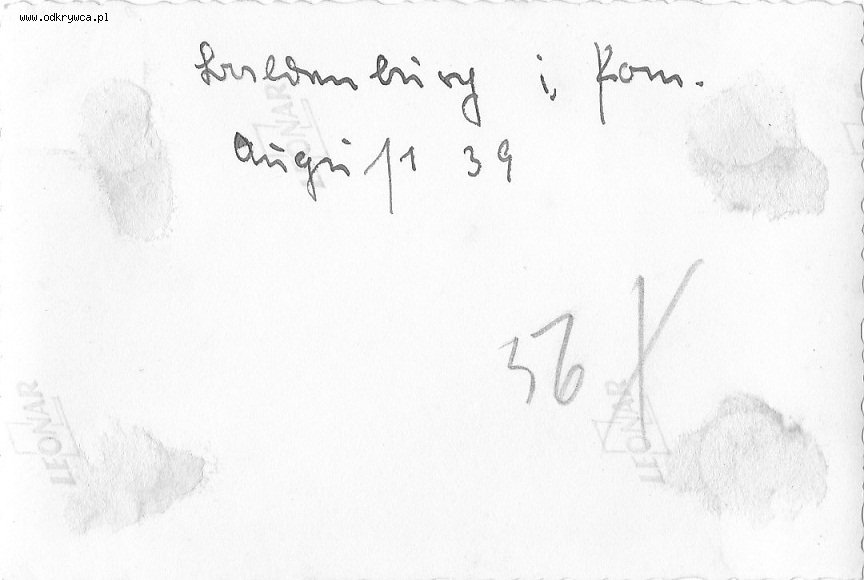 www.odkrywca.pl
Baldenburg i. Pom.
August 39
LEONAR
56
LEONAR
LEONAR